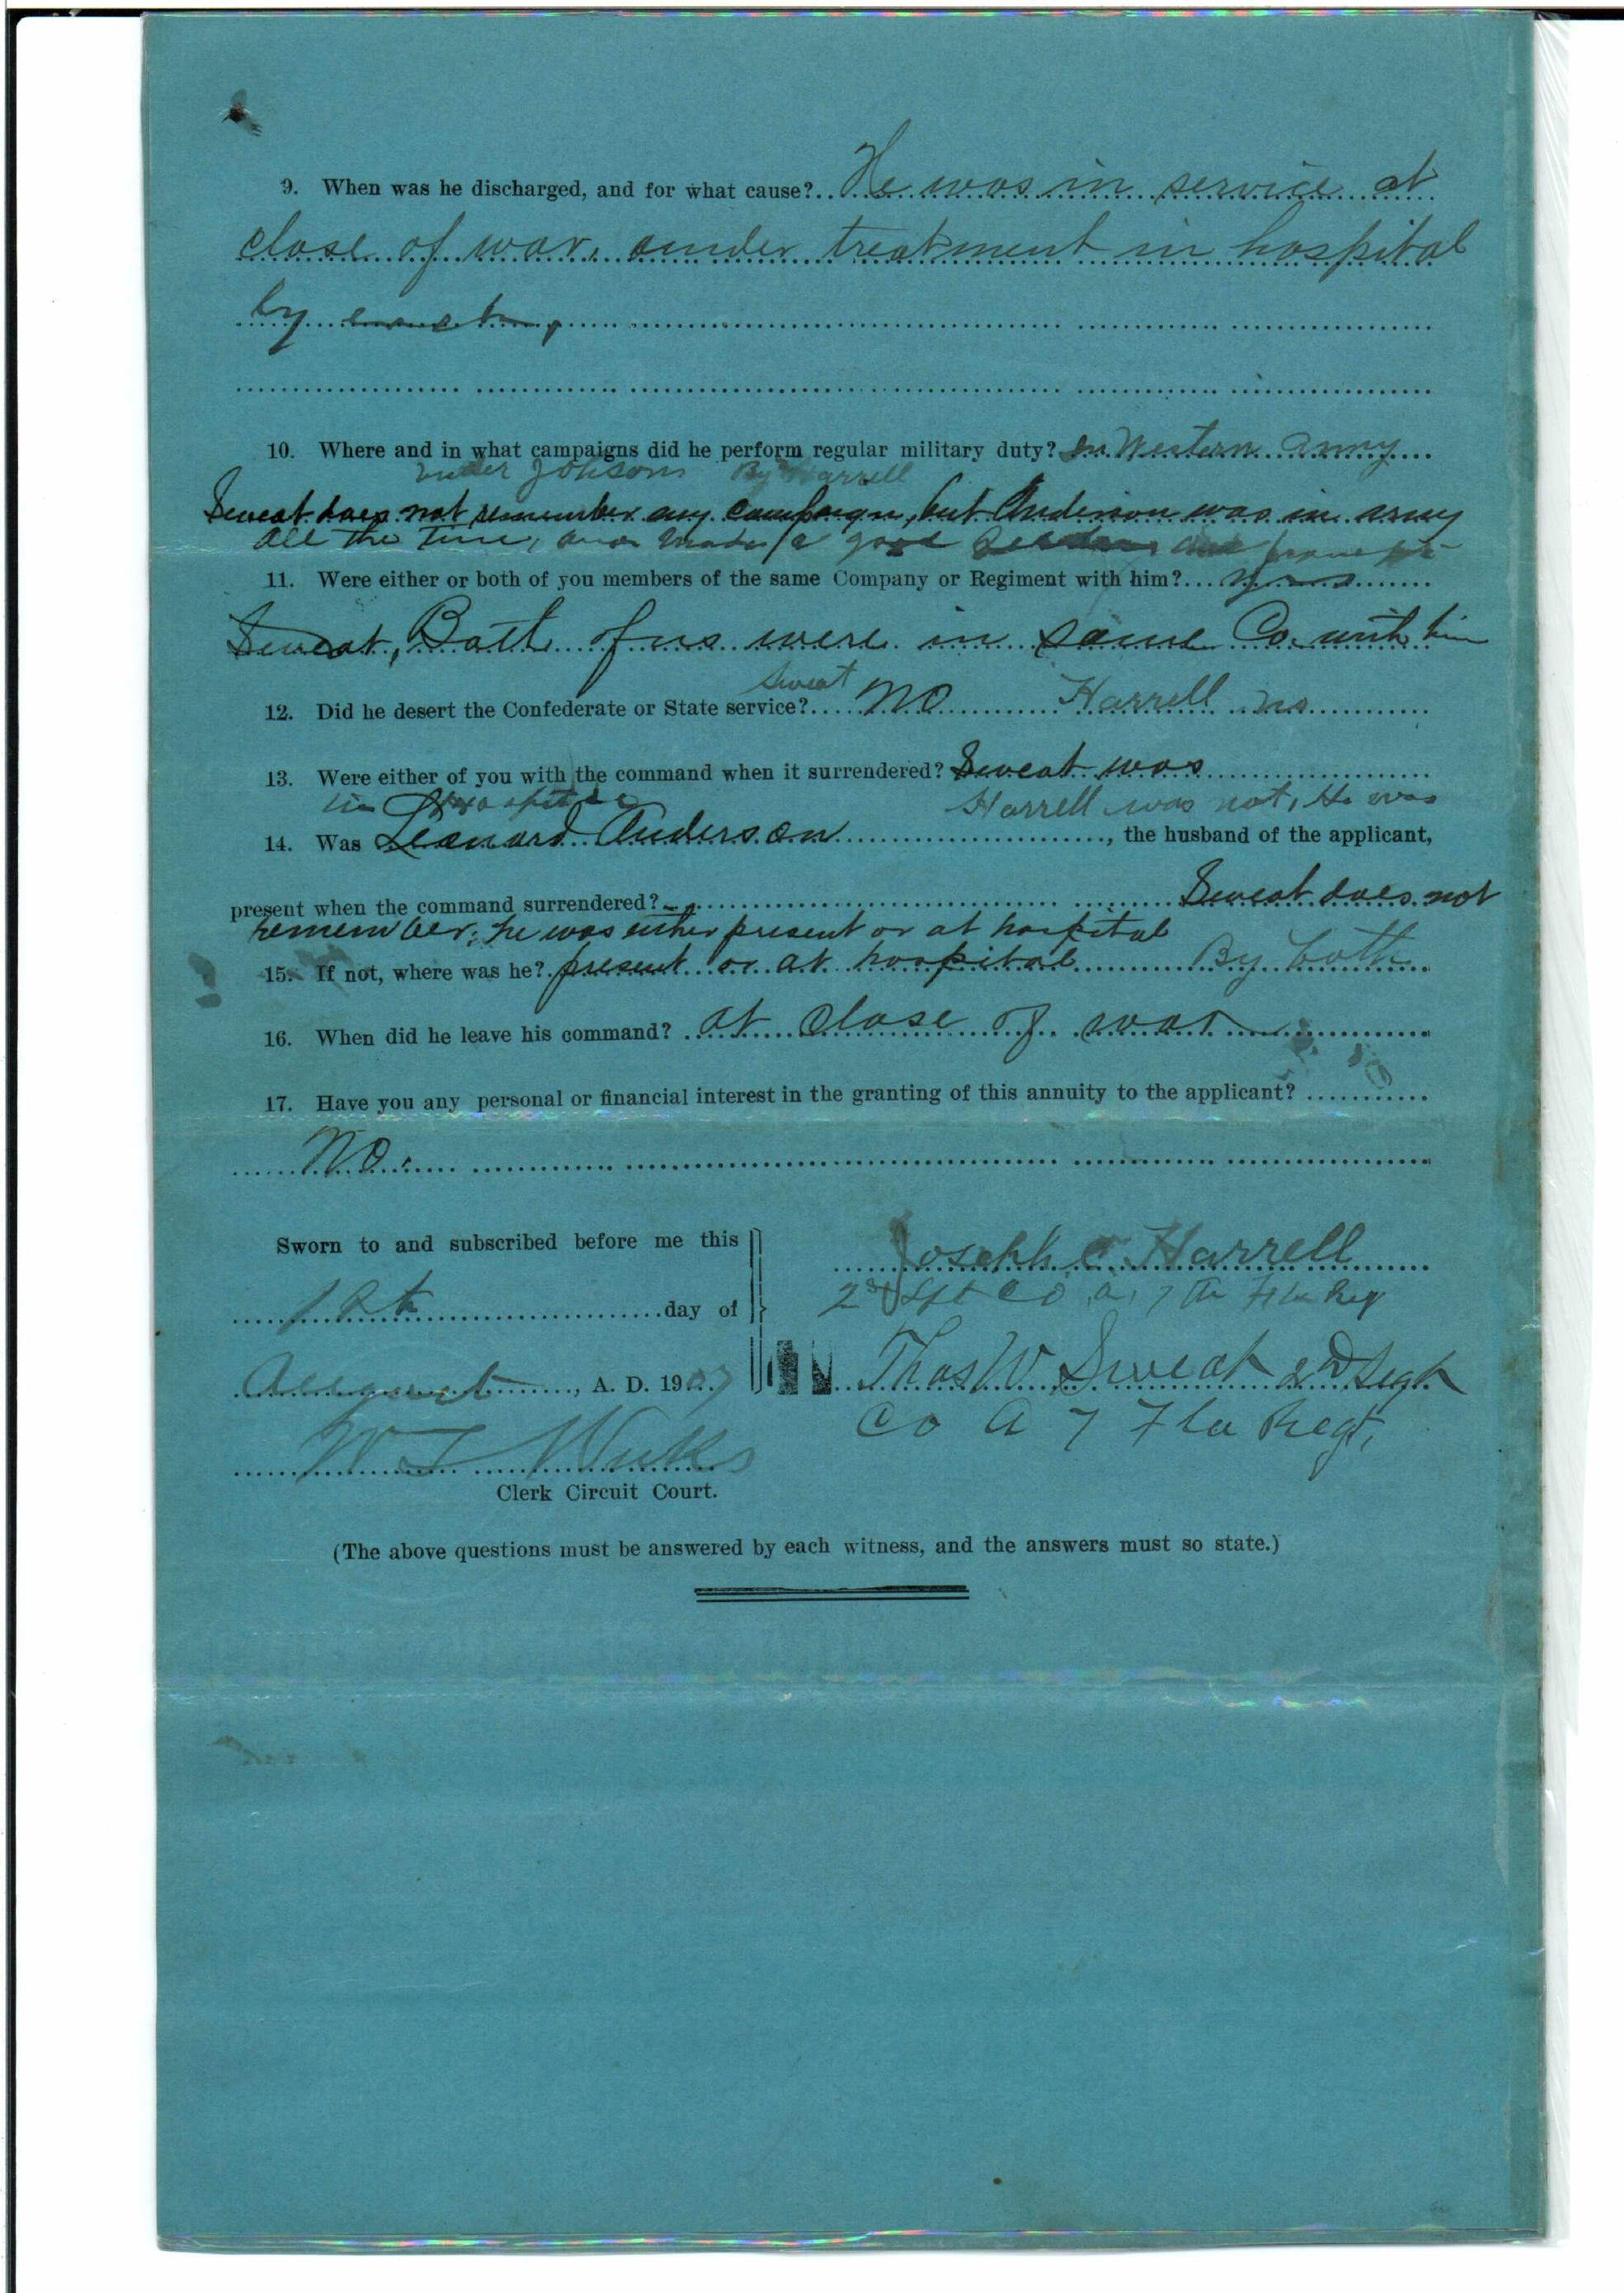 9. When was he discharged, and for what cause? He was in service at
close of war, under treatment in hospital
by
10. Where and in what campaigns did he perform regular military duty? In Western army
under Johson By Harrell
Sweat does not remember any campaign, but Anderson was in army
all the time, and made a good
11. Were either or both of you members of the same Company or Regiment with him? yes
Sweat, Both of us were in same Co. with him
Sweat
12. Did he desert the Confederate or State service? No Harrell no
13. Were either of you with the command when it surrendered? Sweat was
in Hospital Harrell was not, He was
14. Was Leonard Anderson, the husband of the applicant,
present when the command surrendered? Sweat does not
remember; he was either present or at hospital
15. If not, where was he? present or at hospital By both
16. When did he leave his command? at close of war
17. Have you any personal or financial interest in the granting of this annuity to the applicant?
No.
Sworn to and subscribed before me this
Joseph C Harrell
day of
2nd Sgt Co. A. 7th Fla Reg
August, A. D. 1907
Thos W Sweat 2nd Segt
Co A 7 Fla Regt,
Clerk Circuit Court.
(The above questions must be answered by each witness, and the answers must so state.)